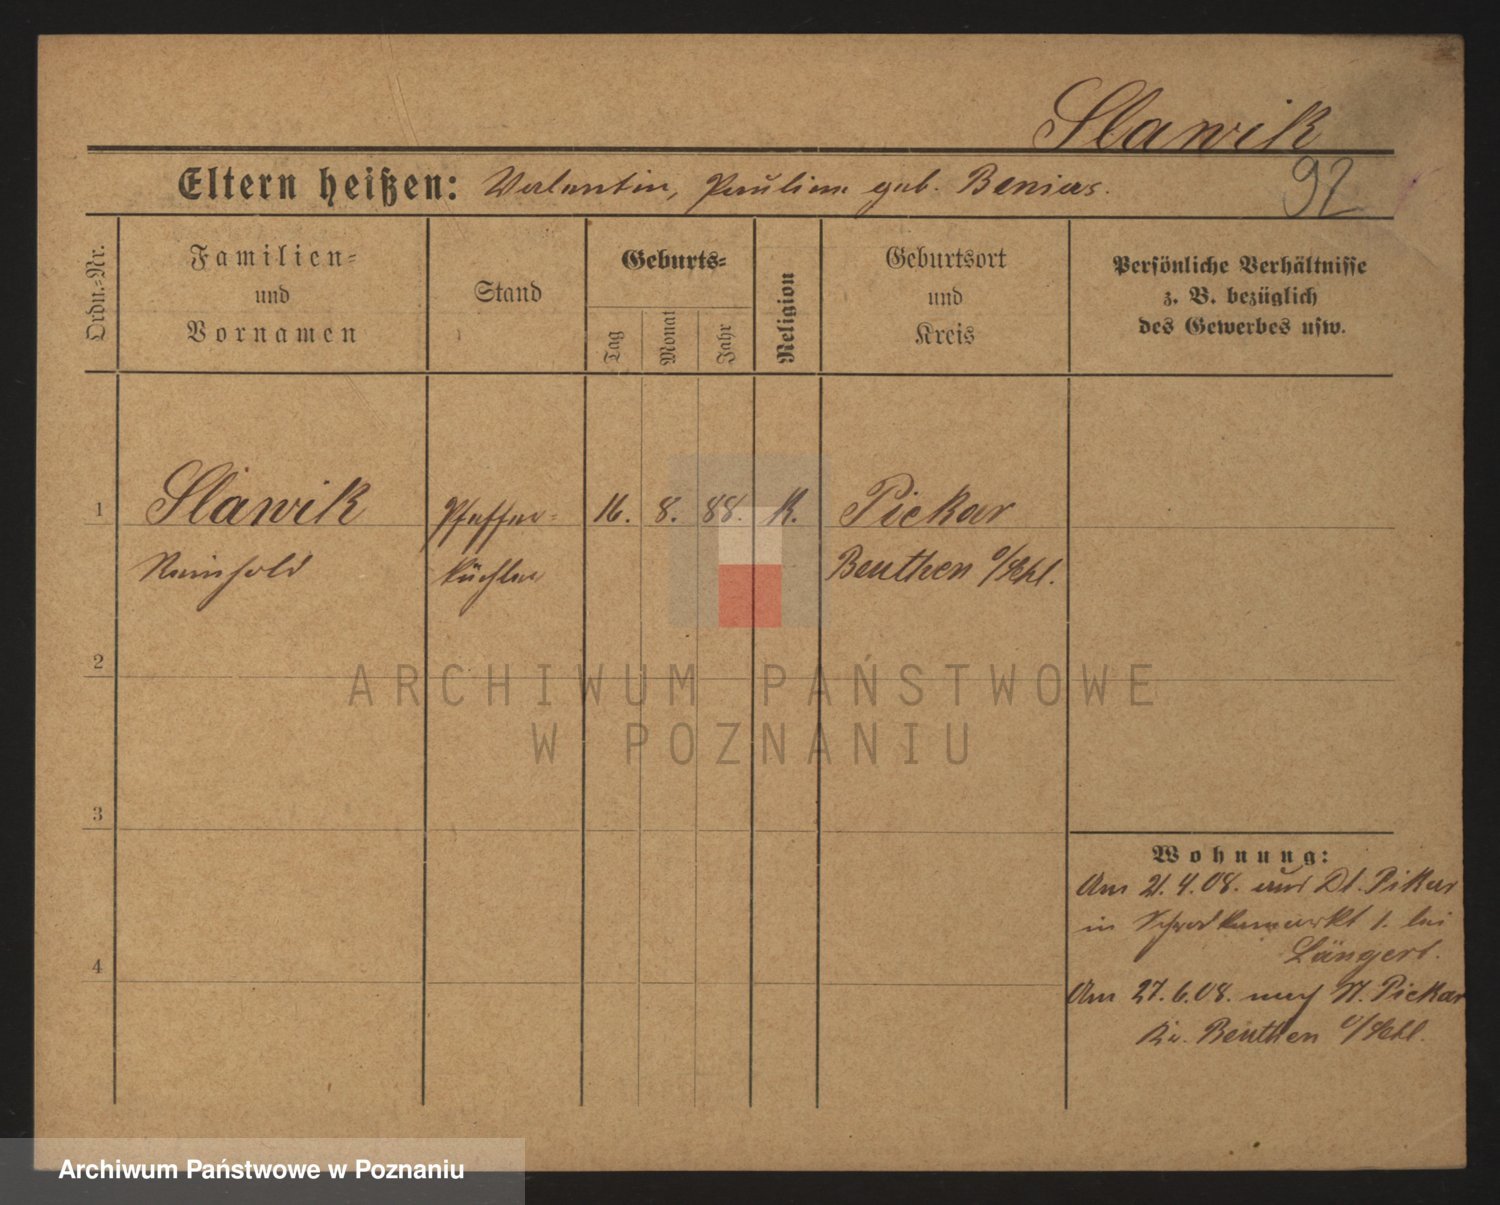 Slawik
Eltern heißen: Valentin, Pauline geb. Benias.
92
Ordn.-Nr.
Familien-
und
Vornamen
Stand
Geburts-
Tag
Monat
Jahr
Religion
Geburtsort
und
Kreis
Persönliche Verhältnisse
z. B. bezüglich
des Gewerbes usw.
1 Slawik Pfeffer- 16. 8. 88. K. Piekar
Reinhold küchler Beuthen O/Schl.
2
ARCHIWUM PAŃSTWOWE
W POZNANIU
3
Wohnung:
Am 21.4.08. aus Dt. Pikar
in 1. bei
Längert.
4
Am 27.6.08. nach Dt. Piekar
Kr. Beuthen O/Schl.
Archiwum Państwowe w Poznaniu